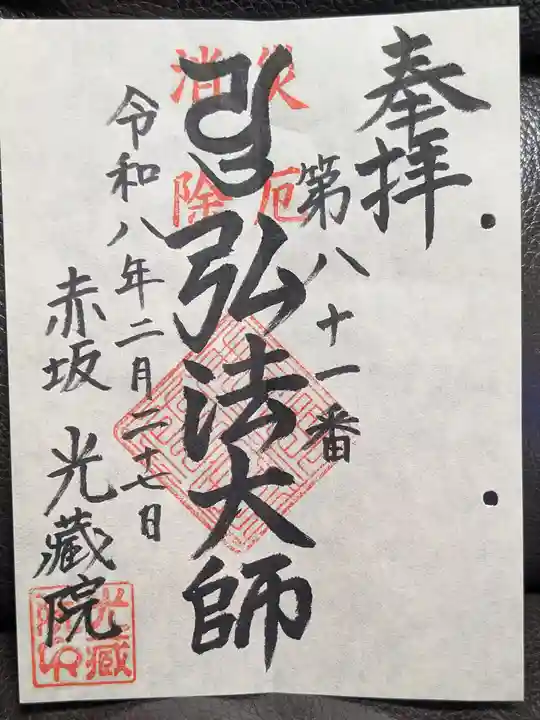 奉拝
第八十一番
災厄
消除
弘法大師
令和八年二月二十七日
赤坂 光藏院